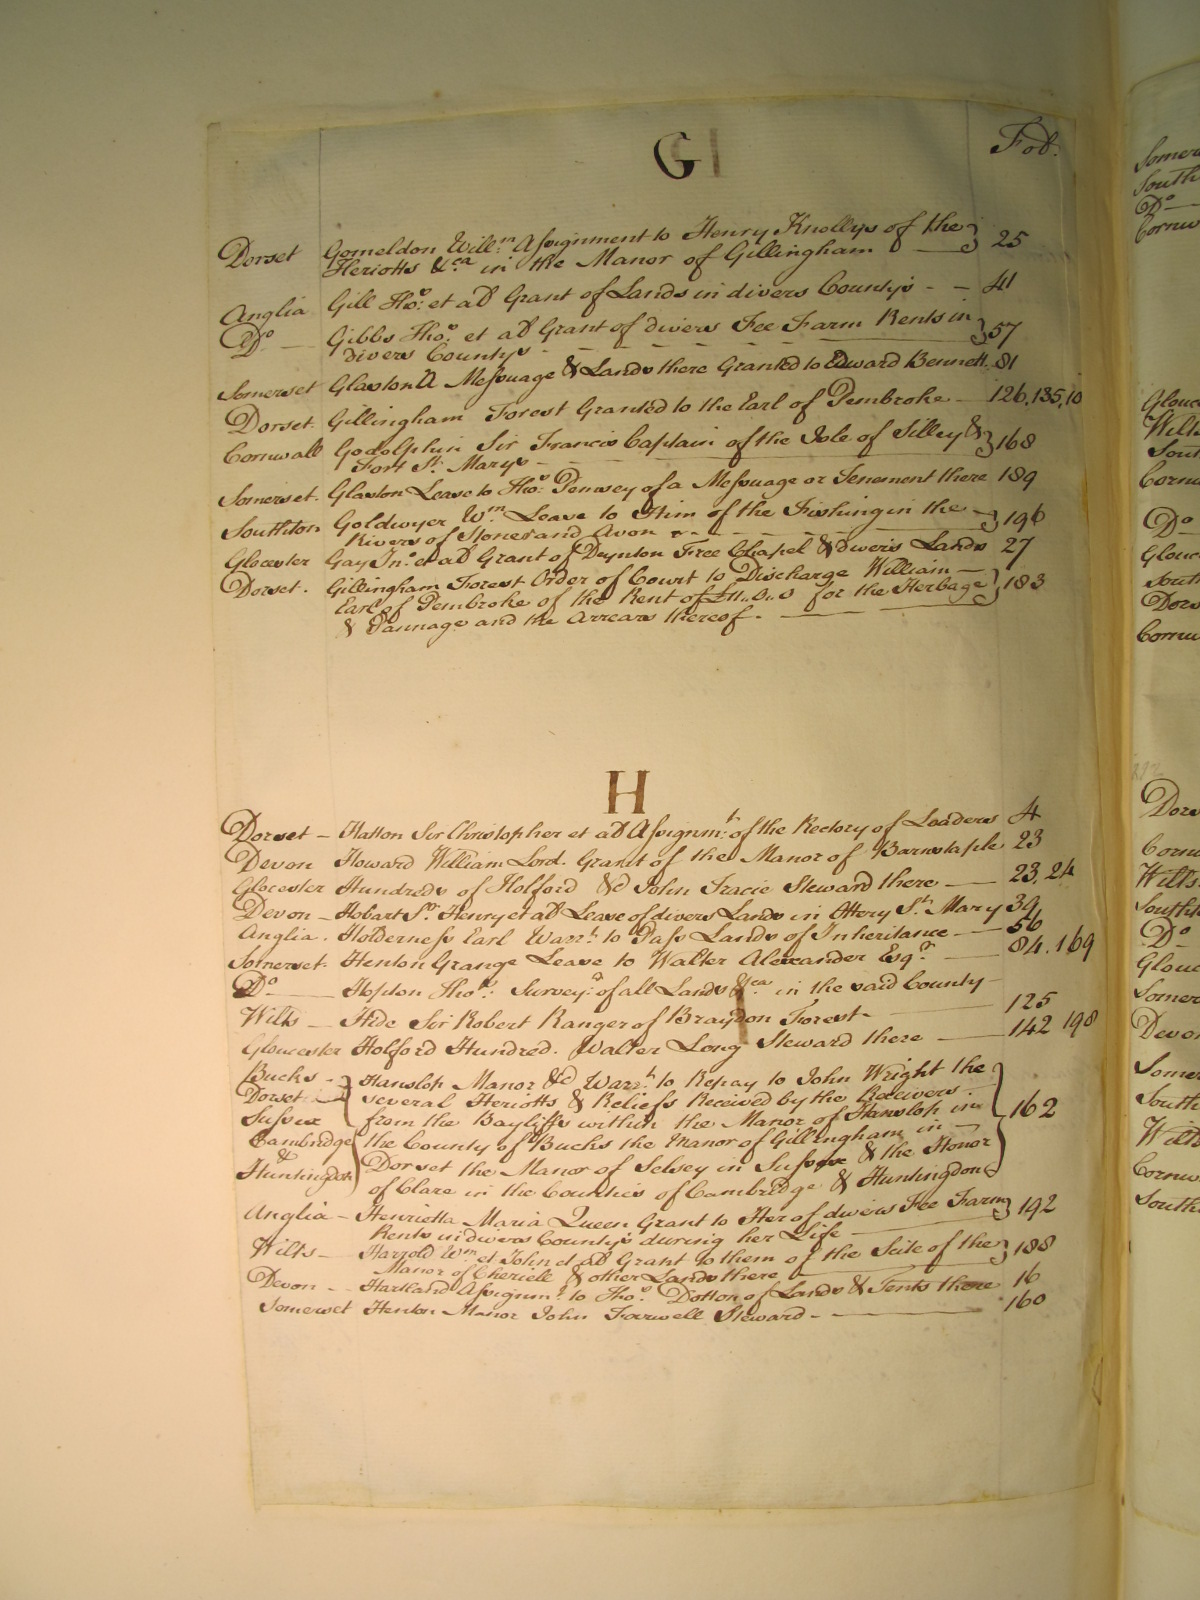 G
Fol.
Dorset Gomeldon Will:m Assignment to Henry Knollys of the
Heriotts &ca in the Manor of Gillingham 25
Anglia Gill Tho:s et als Grant of Lands in divers Countys - - 41
Do Gibbs Tho:s et als Grant of divers Fee Farm Rents in
divers Countys 57
Somerset Glaston A Messuage & Lands there Granted to Edward Bennett. 81
Dorset. Gillingham Forest Granted to the Earl of Pembroke - 126.135.10
Cornwall Godolphin Sir Francis Captain of the Isle of Silley &
Fort St. Marys - 168
Somerset. Glaston Lease to Tho:s Pewsey of a Messuage or Tenement there 189
Southton Goldwyer Wm. Lease to Him of the Fishing in the
Rivers of Stoner and Avon 196
Glocester Gay Jno. et als Grant of Deynton Free Chapel & divers Lands 27
Dorset. Gillingham Forest Order of Court to Discharge William
Earl of Pembroke of the Rent of for the Herbage
& Pannage and the Arrears thereof. 183
H
Dorset - Hatton Sir Christopher et als Assignmt. of the Rectory of Loaders 4
Devon Howard William Lord. Grant of the Manor of Barnstaple 23
Glocester Hundreds of Holford &c John Tracie Steward there 23.24
Devon - Hobart Sr. Henry et als Lease of divers Lands in Ottery St. Mary 39
Anglia. Holderness Earl Warrt. to Pass Lands of Inheritance 56
Somerset. Henton Grange Lease to Walter Alexander Esqr. 84.169
Do Hopton Tho:s: Survey:r of all Lands &ca in the said County
Wilts - Hide Sir Robert Ranger of Braydon Forest - 125
Gloucester Holford Hundred. Walter Long Steward there 142 198
Bucks - Hanslop Manor &c Warrt. to Repay to John Wright the
Dorset several Heriotts & Reliefs Received by the Receivers
Sussex from the Bayliffs within the Manor of Hanslop in
Cambridge the County of Bucks the Manor of Gillingham in 162
& Dorset the Manor of Selsey in Sussex & the Honor
Huntingdon of Clare in the Counties of Cambridge & Huntingdon
Anglia - Henrietta Maria Queen Grant to Her of divers Fee Farm
Rents in divers Countys during her Life 192
Wilts - Harrold Wm et John et als Grant to them of the Scite of the
Manor of Cheriell & other Lands there 188
Devon - Hartland Assignmt. to Tho:s Dotton of Lands & Tents there 16
Somerset Henton Manor John Farewell Steward - 160
Somer
South
Do
Cornw
Glouc
Wilts
Sout
Cornw
Do
Glouc
South
Dors
Cornw
Dors
Cornw
Wilts
South
Do
Glouc
Somer
Devon
Somer
South
Wilts
Cornw
South